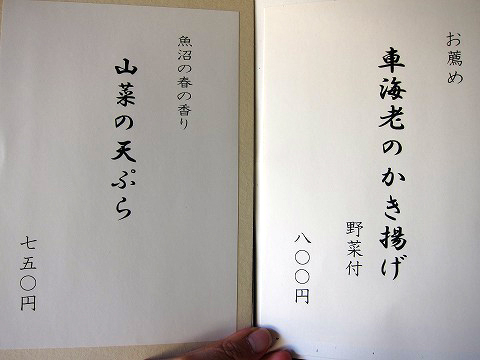 お薦め
車海老のかき揚げ
野菜付
八〇〇円
魚沼の春の香り
山菜の天ぷら
七五〇円